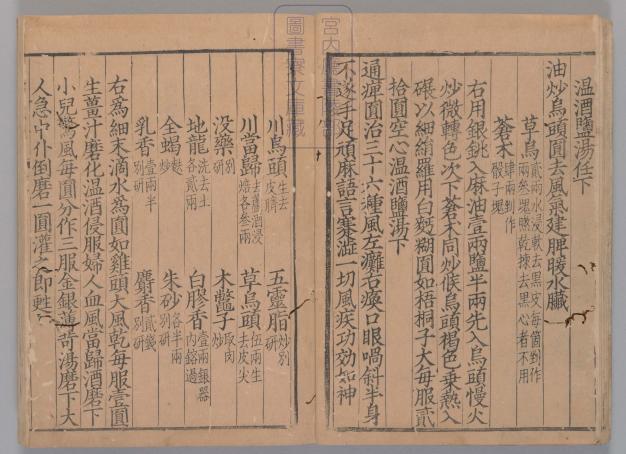 温酒鹽湯任下
油炒烏頭圓去風氣建脾暖水臟
草烏貳兩水浸軟去黑皮每箇到作兩叁塊曬乾揀去黑心者不用
蒼木肆兩到作骰子塊
右用銀銚入麻油壹兩鹽半兩先入烏頭慢火
炒微轉色次下蒼木同炒候烏頭褐色乗熱入
碾以細絹羅用白麫糊圓如梧桐子大每服貳
拾圓空心温酒鹽湯下
通瘴圓治三十六種風左癱右瘓口眼喎斜半身
不遂手足頑麻語言蹇澁一切風疾功効如神
川烏頭生去皮臍 五靈脂炒別研
川當歸去蘆酒浸焙各叁兩 草烏頭伍兩生去皮尖
没藥別研 木鼈子取肉炒
地龍洗去土各貳兩 白膠香壹兩銀器内鎔過
全蝎麩炒 朱砂各半兩別研
乳香壹兩半別研 麝香貳錢別研
右為細末滴水為圓如雞頭大風乾每服壹圓
生薑汁磨化温酒侵服婦人血風當歸酒磨下
小兒驚風每圓分作三服金銀薄荷湯磨下大
人急中仆倒磨一圓灌之即甦
宮内省圖書寮
圖書寮文庫藏